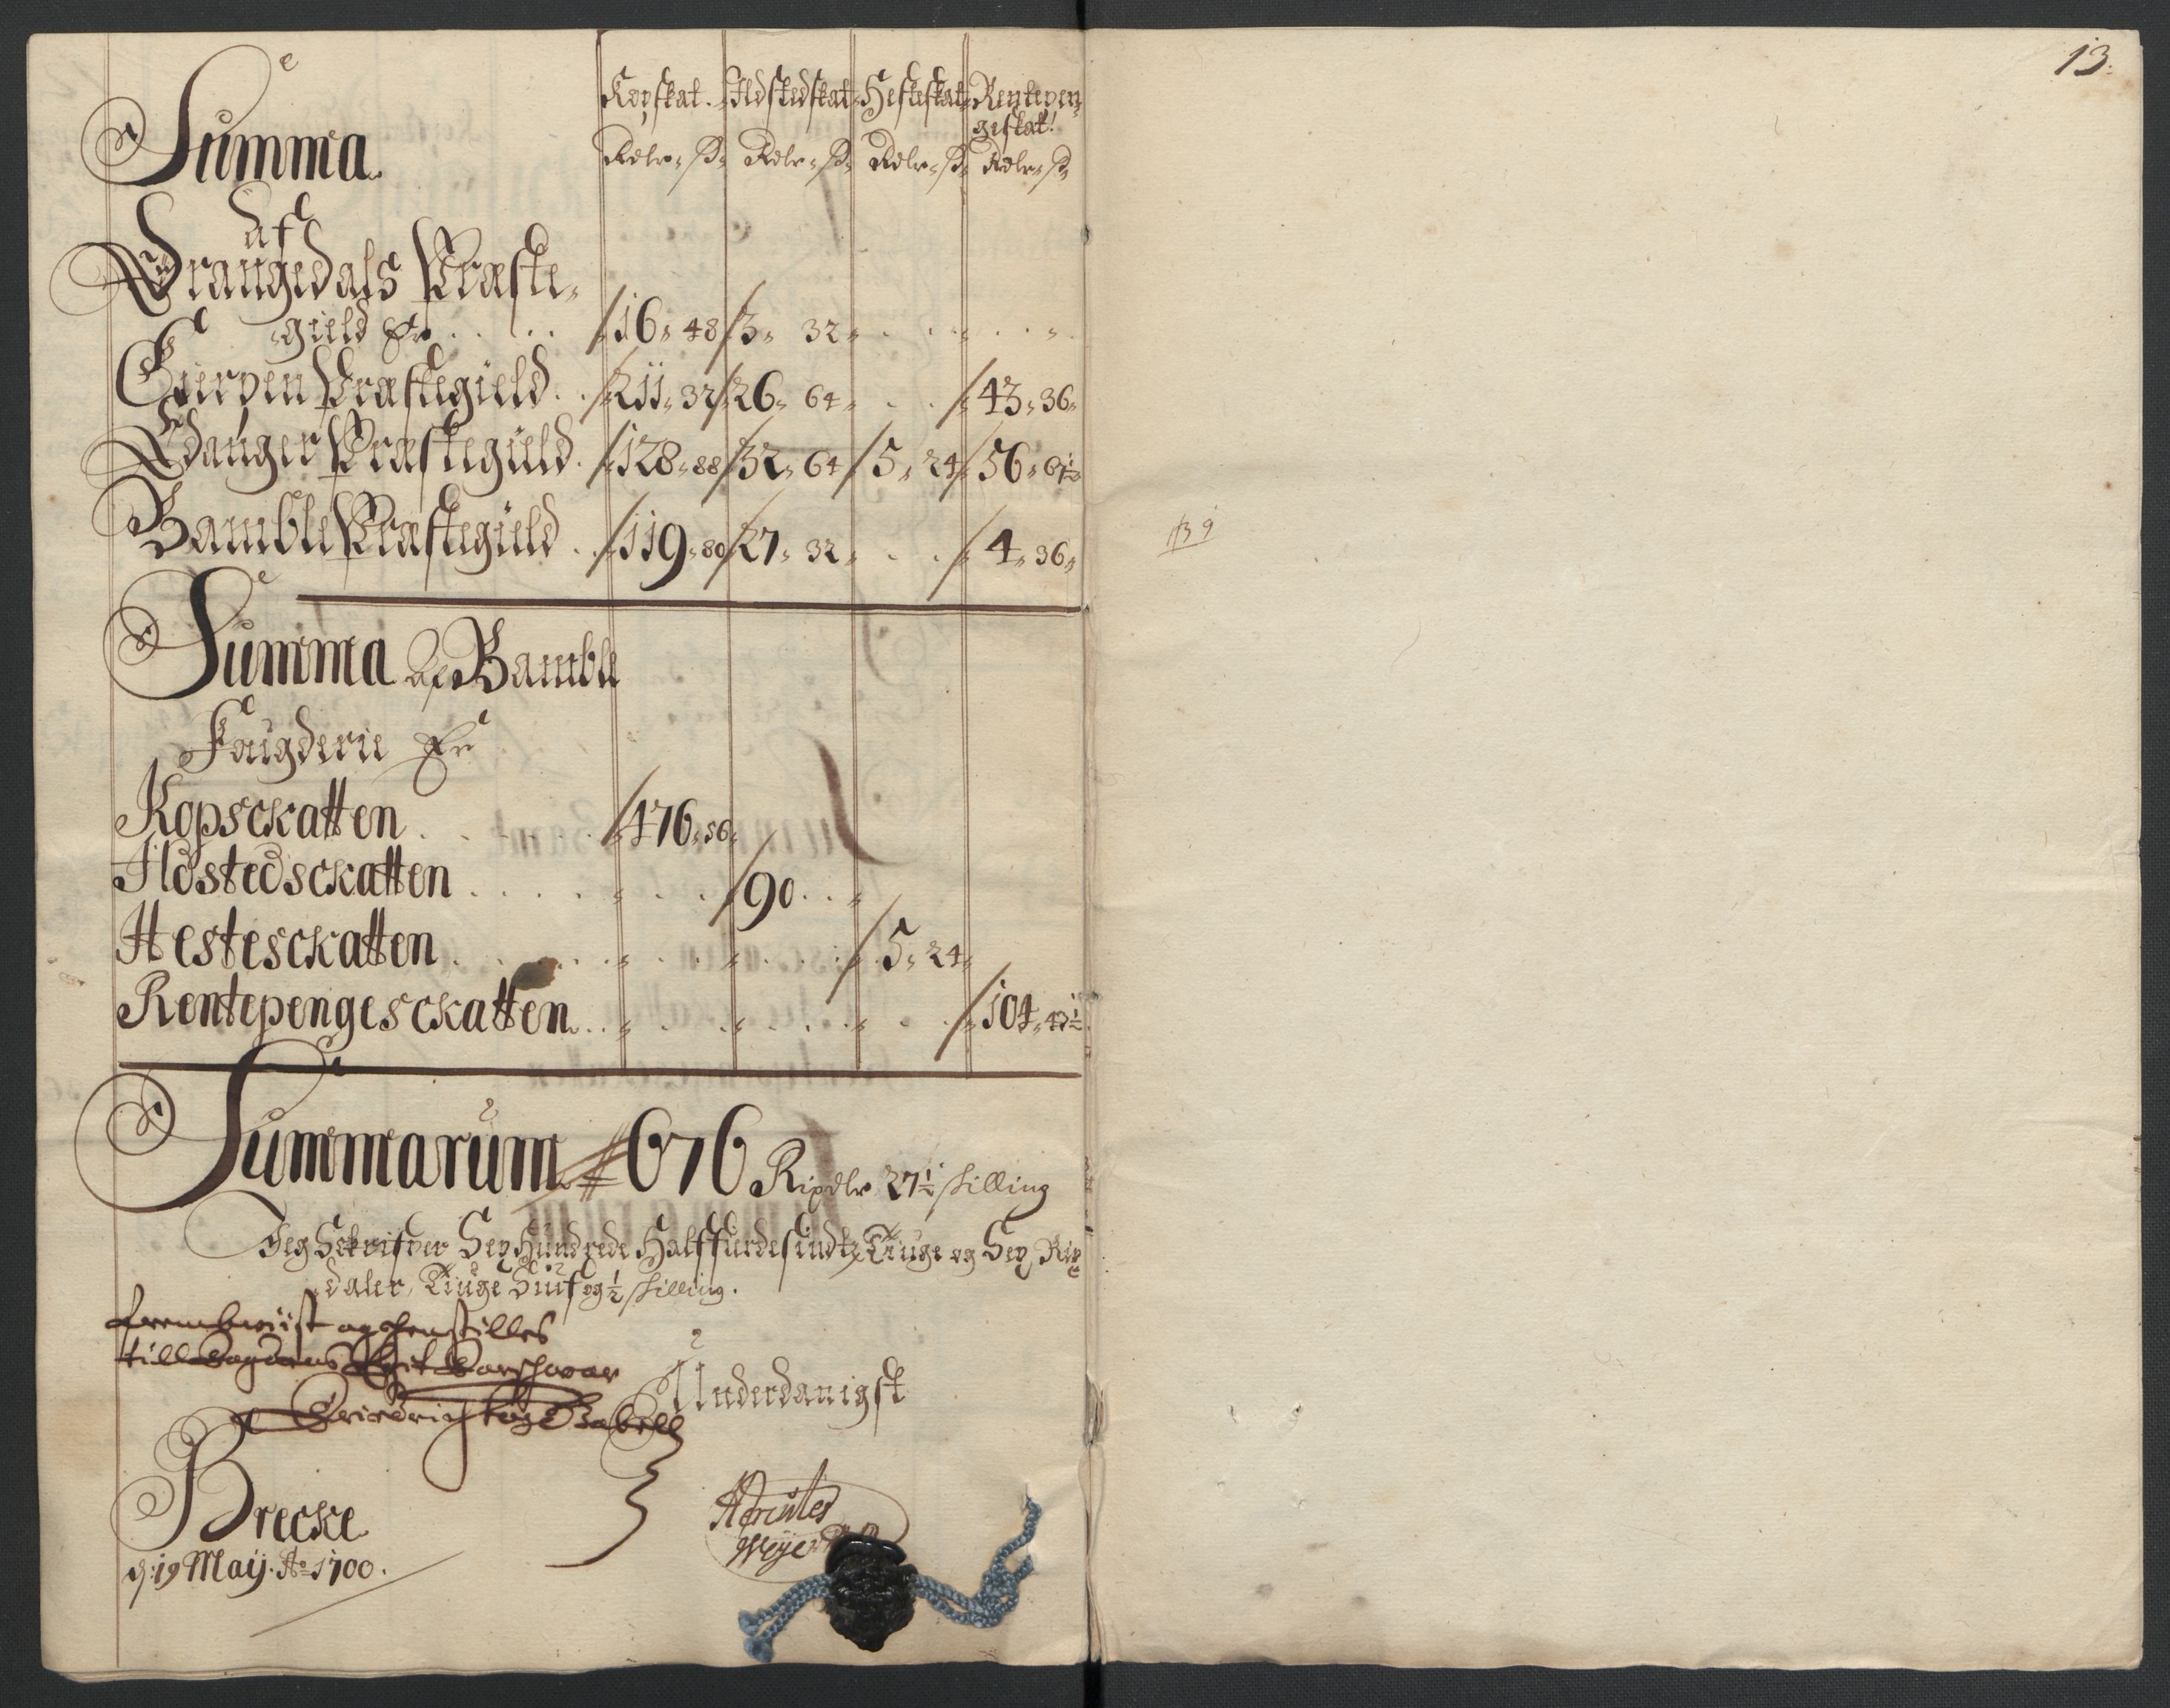 Summa
Kopskat. Ildstedskat Hesteskat Rentepen-
geskat!
Rdlr ß Rdlr ß Rdlr ß Rdlr ß
af
Draugedals Præste-
gield Er . . . 16 48 3 32 . . . . .
Gierpen Præstegield . . 211 32 26 64 . . 43 36
Edanger Præstegield . 128 88 32 64 5 24 56 67½
Bamble Præstegield . . 119 80 27 32 . . 4 36
Summa af Bamble
Faugderie Er
Kopsckatten . . . . 476 56
Ildstedsckatten . . . . . . 90 . .
Hestesckatten . . . . . . . . 5 24
Rentepengesckatten . . . . . . . . 104 43½
Summarum 676 Rixdlr 27½ skilling
Jeg Sckrifver Sex Hundrede Halffierdesindtz Tiuge og Sex Rix
daler, Tiuge Siuf og ½ skilling.
frembwiist og henstilles
till
Underdanigst
Brecke
d: 19 Maij. Ao 1700.
Hercules
Weyer
13.